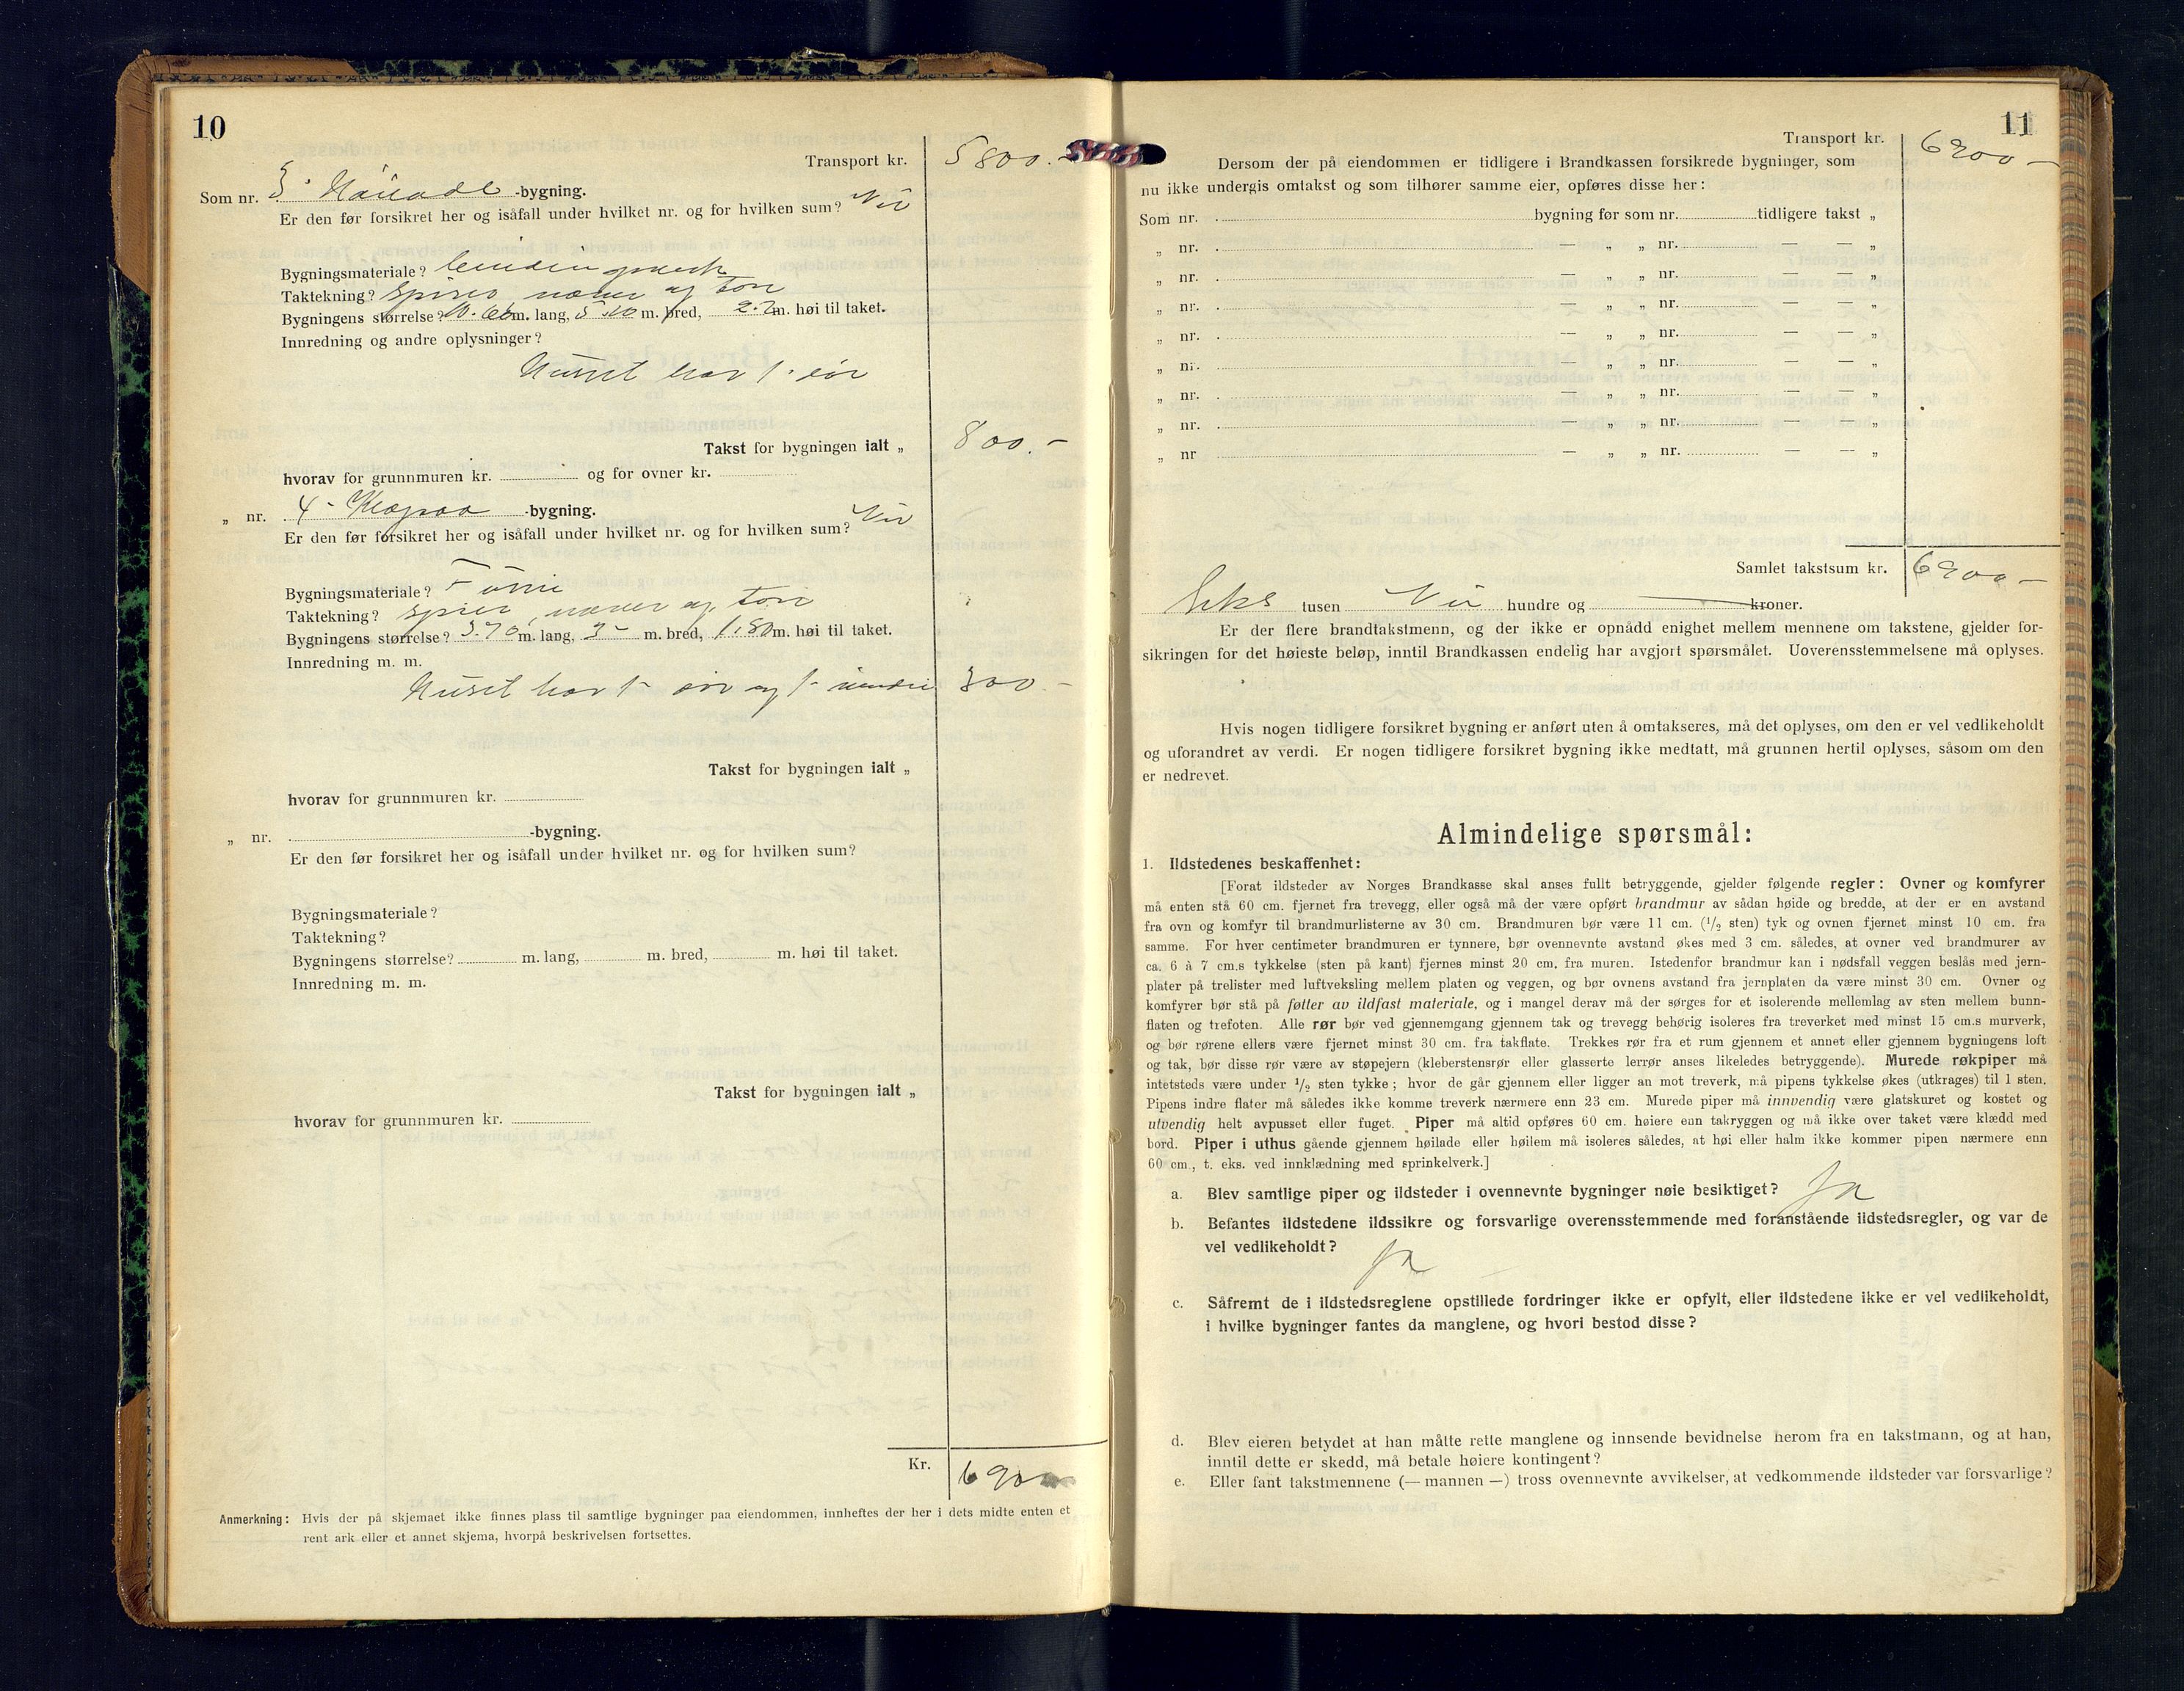 10
Transport kr. 5800.-
Som nr. 3. -bygning.
Er den før forsikret her og isåfall under hvilket nr. og for hvilken sum?
Bygningsmateriale?
Taktekning? spiser næver og torv
Bygningens størrelse? m. lang, 5.10 m. bred, m. høi til taket.
Innredning og andre oplysninger?
Huset har 1.
Takst for bygningen ialt „ 800.-
hvorav for grunnmuren kr. og for ovner kr.
„ nr. 4 - -bygning.
Er den før forsikret her og isåfall under hvilket nr. og for hvilken sum?
Bygningsmateriale?
Taktekning? næver og torv
Bygningens størrelse? 3.70 m. lang, 3- m. bred, 1.80 m. høi til taket.
Innredning m. m.
Huset har 1- og 1- 300.-
Takst for bygningen ialt „
hvorav for grunnmuren kr.
„ nr. -bygning.
Er den før forsikret her og isåfall under hvilket nr. og for hvilken sum?
Bygningsmateriale?
Taktekning?
Bygningens størrelse? m. lang, m. bred, m. høi til taket.
Innredning m. m.
Takst for bygningen ialt „
hvorav for grunnmuren kr.
Kr. 6900
Anmerkning: Hvis der på skjemaet ikke finnes plass til samtlige bygninger paa eiendommen, innheftes der her i dets midte enten et
rent ark eller et annet skjema, hvorpå beskrivelsen fortsettes.
11
Transport kr. 6900-
Dersom der på eiendommen er tidligere i Brandkassen forsikrede bygninger, som
nu ikke undergis omtakst og som tilhører samme eier, opføres disse her:
Som nr. bygning før som nr. tidligere takst „
„ nr. — „ „ nr. — — „
„ nr. — „ „ nr. — — „
„ nr. — „ „ nr. — — „
„ nr. — „ „ nr. — — „
„ nr. — „ „ nr. — — „
„ nr. — „ „ nr. — — „
„ nr. — „ „ nr. — — „
„ nr — „ „ nr. — — „
Samlet takstsum kr. 6900-
Seks tusen Ni hundre og — kroner.
Er der flere brandtakstmenn, og der ikke er opnådd enighet mellem mennene om takstene, gjelder for-
sikringen for det høieste beløp, inntil Brandkassen endelig har avgjort spørsmålet. Uoverensstemmelsene må oplyses.
Hvis nogen tidligere forsikret bygning er anført uten å omtakseres, må det oplyses, om den er vel vedlikeholdt
og uforandret av verdi. Er nogen tidligere forsikret bygning ikke medtatt, må grunnen hertil oplyses, såsom om den
er nedrevet.
Almindelige spørsmål:
1. Ildstedenes beskaffenhet:
[Forat ildsteder av Norges Brandkasse skal anses fullt betryggende, gjelder følgende regler: Ovner og komfyrer
må enten stå 60 cm. fjernet fra trevegg, eller også må der være opført brandmur av sådan høide og bredde, at der er en avstand
fra ovn og komfyr til brandmurlisterne av 30 cm. Brandmuren bør være 11 cm. (1/2 sten) tyk og ovnen fjernet minst 10 cm. fra
samme. For hver centimeter brandmuren er tynnere, bør ovennevnte avstand økes med 3 cm. således, at ovner ved brandmurer av
ca. 6 à 7 cm.s tykkelse (sten på kant) fjernes minst 20 cm. fra muren. Istedenfor brandmur kan i nødsfall veggen beslås med jern-
plater på trelister med luftveksling mellem platen og veggen, og bør ovnens avstand fra jernplaten da være minst 30 cm. Ovner og
komfyrer bør stå på føtter av ildfast materiale, og i mangel derav må der sørges for et isolerende mellemlag av sten mellem bunn-
flaten og trefoten. Alle rør bør ved gjennemgang gjennem tak og trevegg behørig isoleres fra treverket med minst 15 cm.s murverk,
og bør rørene ellers være fjernet minst 30 cm. fra takflate. Trekkes rør fra et rum gjennem et annet eller gjennem bygningens loft
og tak, bør disse rør være av støpejern (kleberstensrør eller glasserte lerrør anses likeledes betryggende). Murede røkpiper må
intetsteds være under 1/2 sten tykke; hvor de går gjennem eller ligger an mot treverk, må pipens tykkelse økes (utkrages) til 1 sten.
Pipens indre flater må således ikke komme treverk nærmere enn 23 cm. Murede piper må innvendig være glatskuret og kostet og
utvendig helt avpusset eller fuget. Piper må altid opføres 60 cm. høiere enn takryggen og må ikke over taket være klædd med
bord. Piper i uthus gående gjennem høilade eller høilem må isoleres således, at høi eller halm ikke kommer pipen nærmere enn
60 cm., t. eks. ved innklædning med sprinkelverk.]
a. Blev samtlige piper og ildsteder i ovennevnte bygninger nøie besiktiget? Ja
b. Befantes ildstedene ildssikre og forsvarlige overensstemmende med foranstående ildstedsregler, og var de
vel vedlikeholdt? Ja
c. Såfremt de i ildstedsreglene opstillede fordringer ikke er opfylt, eller ildstedene ikke er vel vedlikeholdt,
i hvilke bygninger fantes da manglene, og hvori bestod disse?
d. Blev eieren betydet at han måtte rette manglene og innsende bevidnelse herom fra en takstmann, og at han,
inntil dette er skedd, må betale høiere kontingent?
e. Eller fant takstmennene (— mannen —) tross ovennevnte avvikelser, at vedkommende ildsteder var forsvarlige?